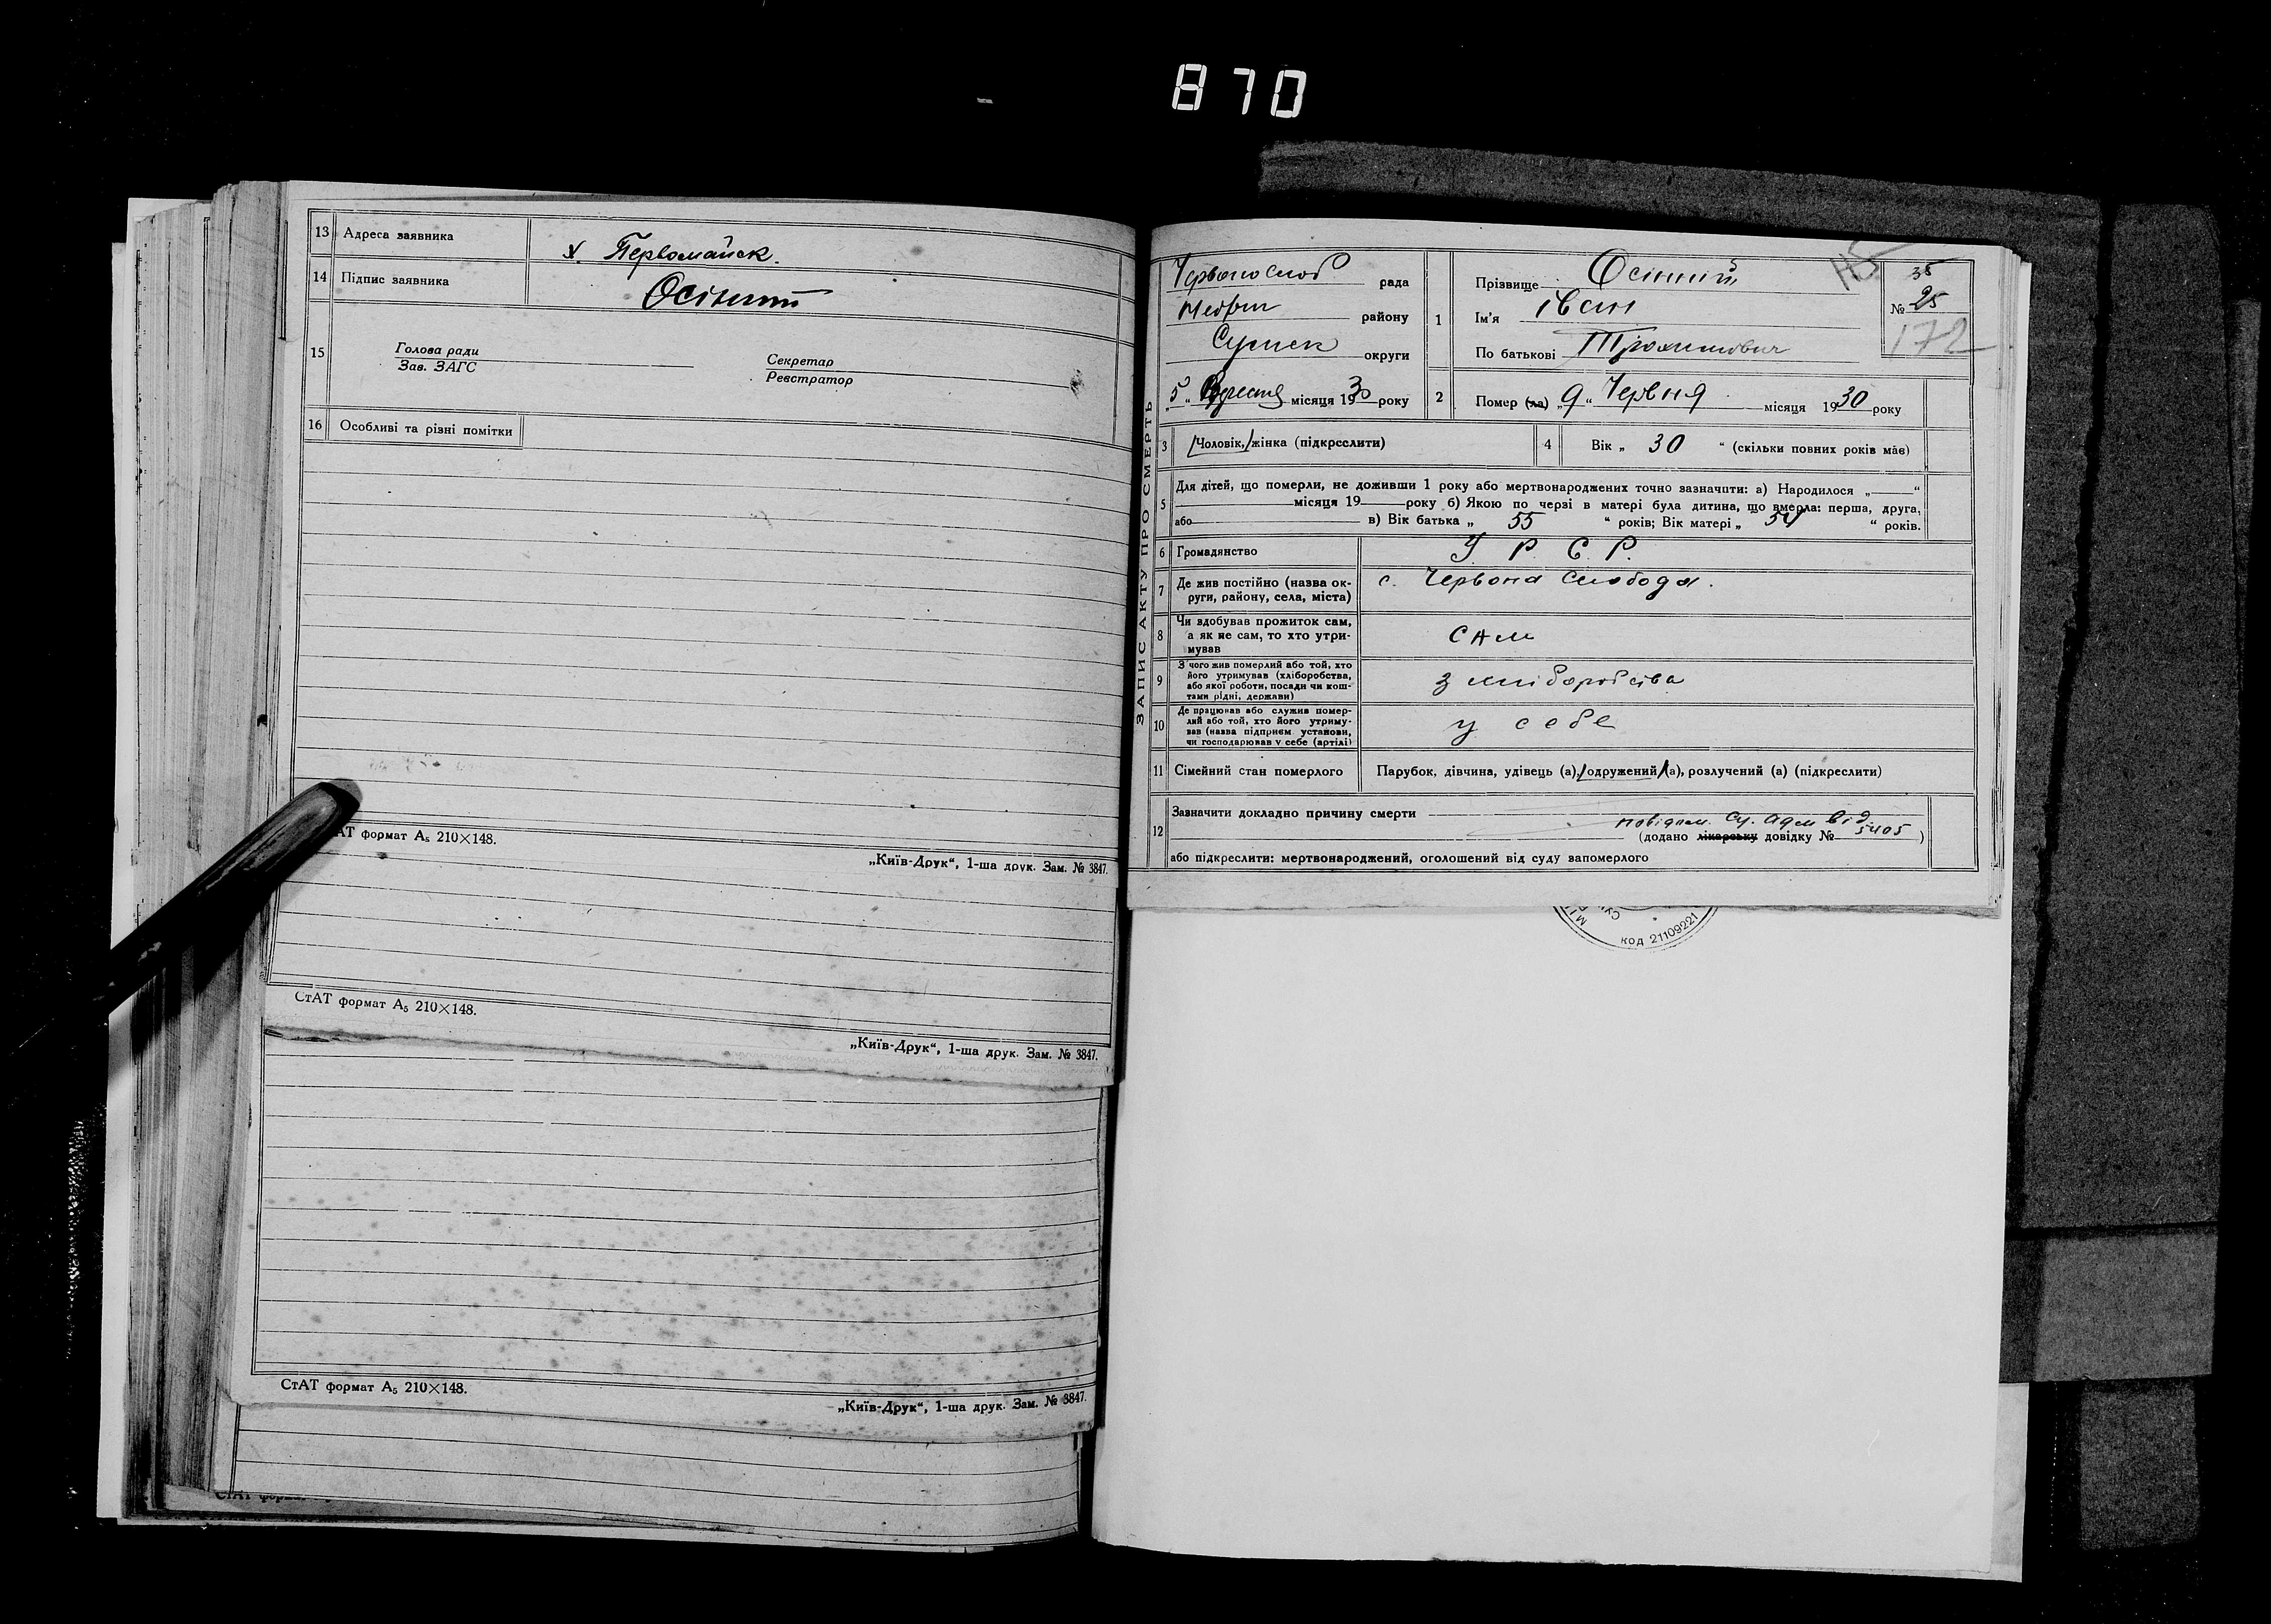 870
13 Адреса заявника х. Первомайск.
14 Підпис заявника Осінній
15 Голова ради
Зав. ЗАГС
Секретар
Реєстратор
16 Особливі та різні помітки
АТ формат А₅ 210×148.
„Київ-Друк“, 1-ша друк. Зам. № 3847.
СтАТ формат А₅ 210×148.
„Київ-Друк“, 1-ша друк. Зам. № 3847.
СтАТ формат А₅ 210×148.
„Київ-Друк“, 1-ша друк. Зам. № 3847.
ЗАПИС АКТУ ПРО СМЕРТЬ
Червонослоб рада
району
Сумск округи
„5“ Вересня місяця 1930 року
1 Прізвище Осінній
Ім'я Іван
По батькові Трохимович
35
№ 25
172
2 Помер (ла) „9“ Червня місяця 1930 року
3 Чоловік, жінка (підкреслити)
4 Вік „ 30 “ (скільки повних років має)
5 Для дітей, що померли, не доживши 1 року або мертвонароджених точно зазначити: а) Народилося „ “
місяця 19 року б) Якою по черзі в матері була дитина, що вмерла: перша, друга,
або в) Вік батька „ 55 “ років; Вік матері „ 54 “ років.
6 Громадянство У. Р. С. Р.
7 Де жив постійно (назва округи, району, села, міста) с. Червона Слобода.
8 Чи здобував прожиток сам, а як не сам, то хто утримував сам
9 З чого жив померлий або той, хто його утримував (хліборобства, або якої роботи, посади чи коштами рідні, держави) з хліборобства
10 Де працював або служив померлий або той, хто його утримував (назва підприєм установи, чи господарював у себе (артілі) у себе
11 Сімейний стан померлого Парубок, дівчина, удівець (а), одружений (а), розлучений (а) (підкреслити)
12 Зазначити докладно причину смерти
повідом. Су. Адм Від.
(додано лікарську довідку № 5405 )
або підкреслити: мертвонароджений, оголошений від суду запомерлого
код 21109221